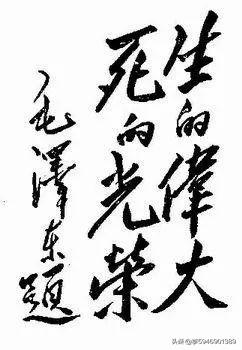 生的偉大
死的光榮
毛澤东題
头条@梦5946901389